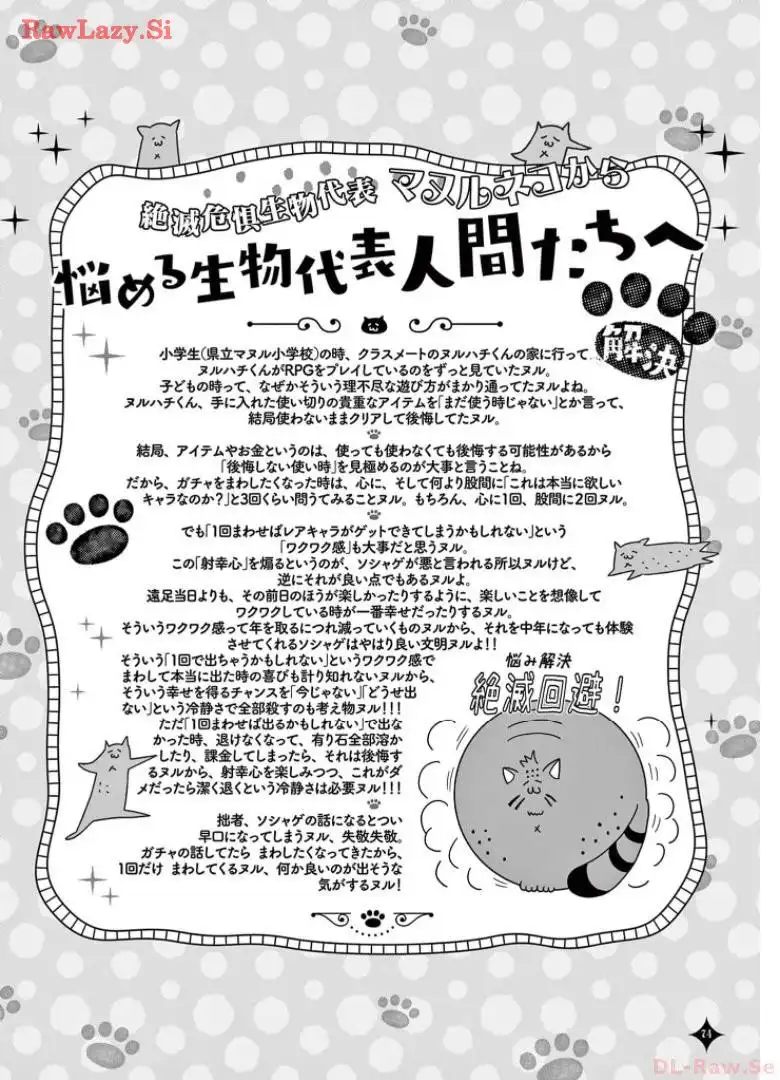 RawLazy.Si
絶滅危惧生物代表 マヌルネコから
悩める生物代表人間たちへ
解決
小学生(県立マヌル小学校)の時、クラスメートのヌルハチくんの家に行って
ヌルハチくんがRPGをプレイしているのをずっと見ていたヌル。
子どもの時って、なぜかそういう理不尽な遊び方がまかり通ってたヌルよね。
ヌルハチくん、手に入れた使い切りの貴重なアイテムを「まだ使う時じゃない」とか言って、
結局使わないままクリアして後悔してたヌル。
結局、アイテムやお金というのは、使っても使わなくても後悔する可能性があるから
「後悔しない使い時」を見極めるのが大事と言うことね。
だから、ガチャをまわしたくなった時は、心に、そして何より股間に「これは本当に欲しい
キャラなのか?」と3回くらい問うてみることヌル。もちろん、心に1回、股間に2回ヌル。
でも「1回まわせばレアキャラがゲットできてしまうかもしれない」という
「ワクワク感」も大事だと思うヌル。
この「射幸心」を煽るというのが、ソシャゲが悪と言われる所以ヌルけど、
逆にそれが良い点でもあるヌルよ。
遠足当日よりも、その前日のほうが楽しかったりするように、楽しいことを想像して
ワクワクしている時が一番幸せだったりするヌル。
そういうワクワク感って年を取るにつれ減っていくものヌルから、それを中年になっても体験
させてくれるソシャゲはやはり良い文明ヌルよ!!
そういう「1回で出ちゃうかもしれない」というワクワク感で
まわして本当に出た時の喜びも計り知れないヌルから、
そういう幸せを得るチャンスを「今じゃない」「どうせ出
ない」という冷静さで全部殺すのも考え物ヌル!!!
ただ「1回まわせば出るかもしれない」で出な
かった時、退けなくなって、有り石全部溶か
したり、課金してしまったら、それは後悔す
るヌルから、射幸心を楽しみつつ、これがダ
メだったら潔く退くという冷静さは必要ヌル!!!
拙者、ソシャゲの話になるとつい
早口になってしまうヌル、失敬失敬。
ガチャの話してたら まわしたくなってきたから、
1回だけ まわしてくるヌル、何か良いのが出そうな
気がするヌル!
悩み解決
絶滅回避!
74
DL-Raw.Se